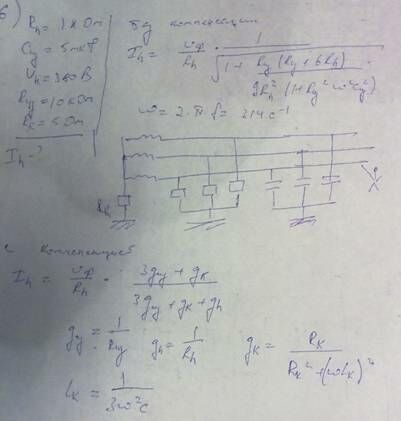 б)
Rh = 1 кОм
Cу = 5 мкФ
Uл = 380 В
Rу = 10 кОм
Rк = 5 Ом
Ih - ?
Без компенсации
Ih = Uф/Rh · 1/√(1 + Rу(Rу + 6Rh)/9Rh²(1 + Rу²ω²Cу²))
ω = 2·π·f = 314 с⁻¹
Rк
с компенсацией
Ih = Uф/Rh · (3gу + gк)/(3gу + gк + gh)
gу = 1/Rу gh = 1/Rh gк = Rк/(Rк² + (ωLк)²)
Lк = 1/3ω²C